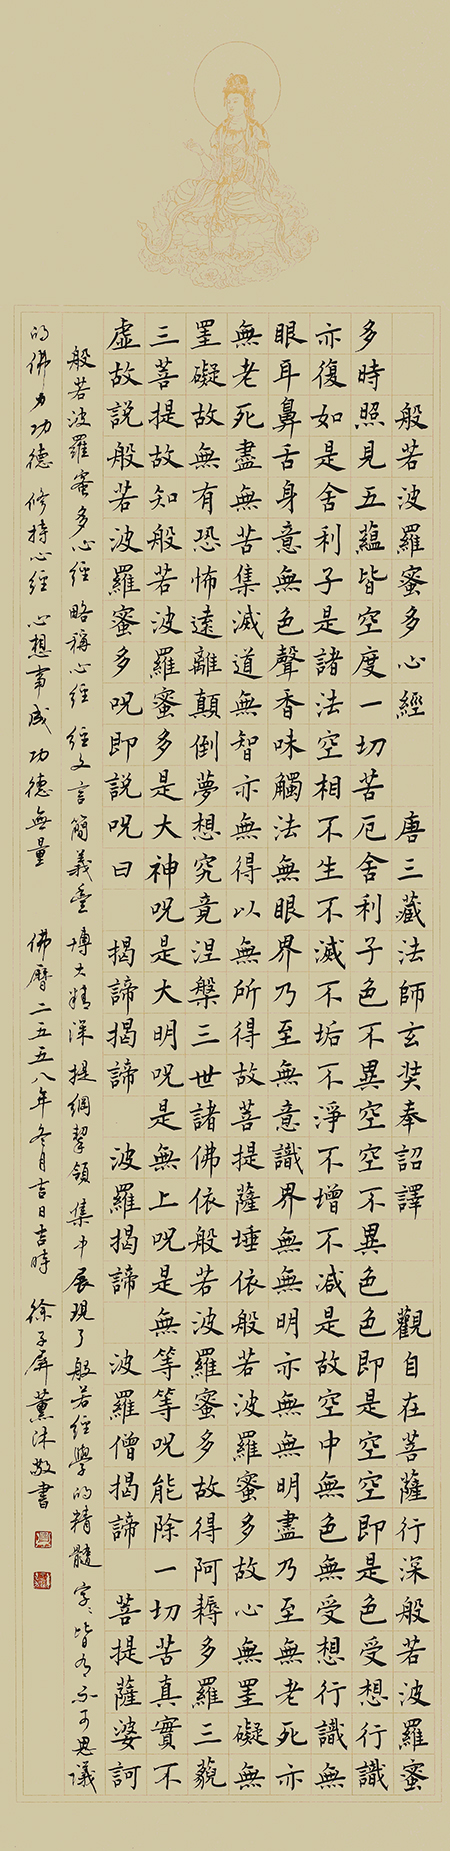 般若波羅蜜多心經 唐三藏法師玄奘奉詔譯 觀自在菩薩行深般若波羅蜜
多時照見五蘊皆空度一切苦厄舍利子色不異空空不異色色即是空空即是色受想行識
亦復如是舍利子是諸法空相不生不滅不垢不淨不增不減是故空中無色無受想行識無
眼耳鼻舌身意無色聲香味觸法無眼界乃至無意識界無無明亦無無明盡乃至無老死亦
無老死盡無苦集滅道無智亦無得以無所得故菩提薩埵依般若波羅蜜多故心無罣礙無
罣礙故無有恐怖遠離顛倒夢想究竟涅槃三世諸佛依般若波羅蜜多故得阿耨多羅三藐
三菩提故知般若波羅蜜多是大神呪是大明呪是無上呪是無等等呪能除一切苦真實不
虛故說般若波羅蜜多呪即說呪曰 揭諦揭諦 波羅揭諦 波羅僧揭諦 菩提薩婆訶
般若波羅蜜多心經 略稱心經 經文言簡義豐 博大精深 提綱挈領 集中展現了般若經學的精髓 字〻皆有不可思議
的佛力功德 修持心經 心想事成 功德無量 佛曆二五五八年冬月吉日吉時 徐子屏薰沐敬書